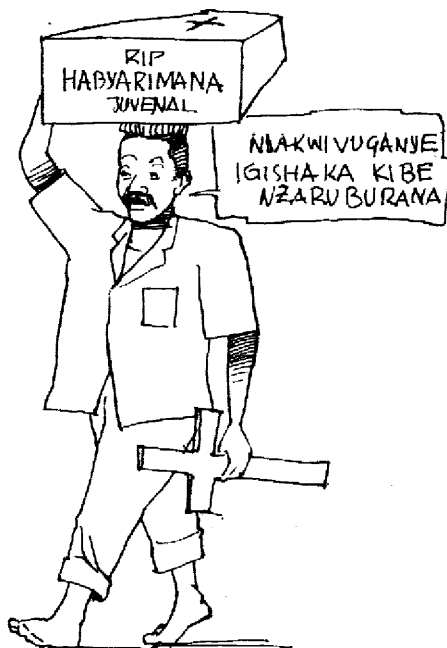 RIP
HABYARIMANA
JUVENAL
NDAKWIVUGANYE
IGISHAKA KIBE
NZARUBURANA